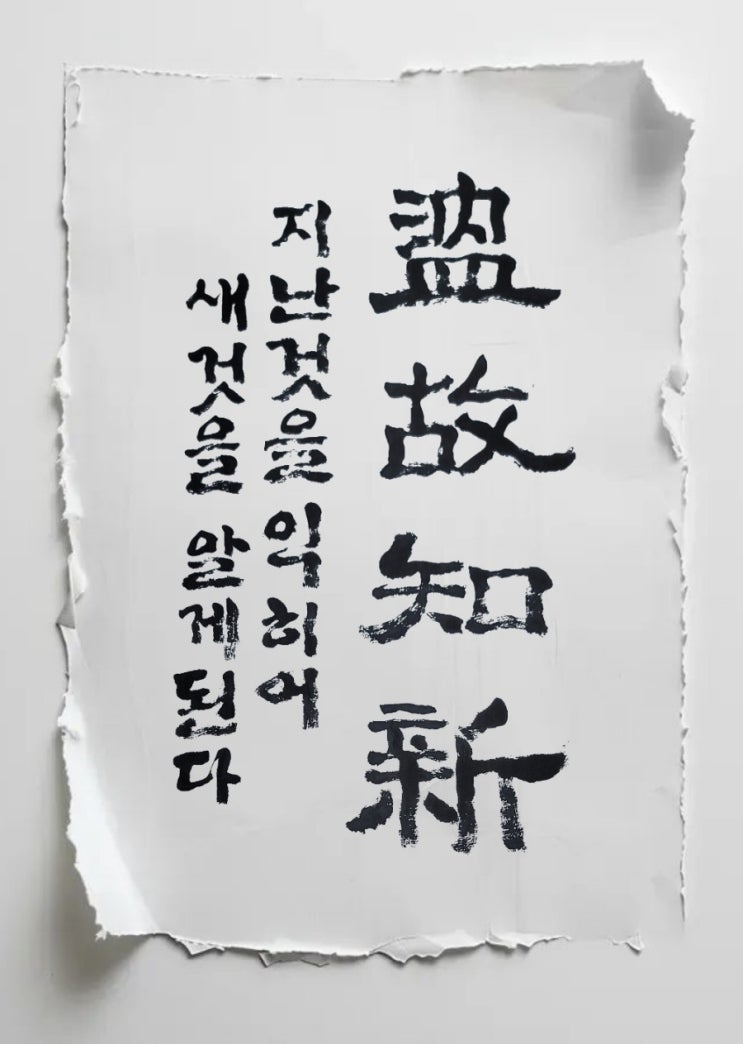 溫故知新
지난것을 익히어
새것을 알게된다